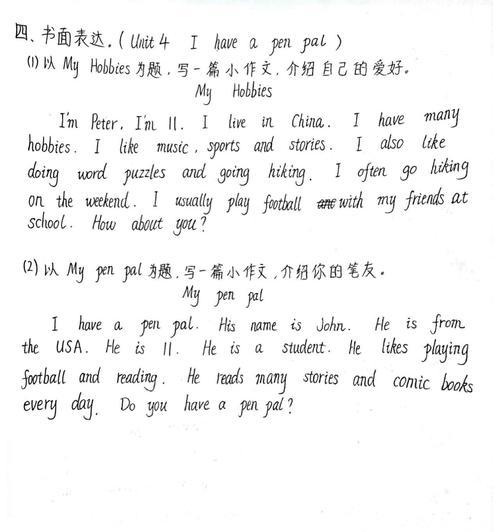 四、书面表达.(Unit 4 I have a pen pal)
(1) 以 My Hobbies 为题,写一篇小作文,介绍自己的爱好。
My Hobbies
I'm Peter. I'm 11. I live in China. I have many
hobbies. I like music, sports and stories. I also like
doing word puzzles and going hiking. I often go hiking
on the weekend. I usually play football with my friends at
school. How about you?
(2) 以 My pen pal 为题,写一篇小作文,介绍你的笔友。
My pen pal
I have a pen pal. His name is John. He is from
the USA. He is 11. He is a student. He likes playing
football and reading. He reads many stories and comic books
every day. Do you have a pen pal?